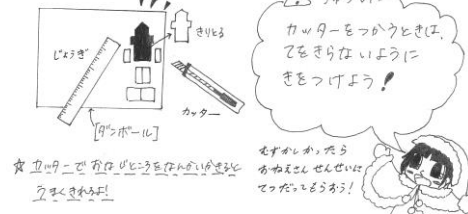 きりとる
じょうぎ
カッター
[ダンボール]
☆カッターでおなじところをなんかいかきると
うまくきれるよ!
カッターをつかうときは、
てをきらないように
きをつけよう!
むずかしかったら
おかあさん せんせいに
てつだってもらおう!